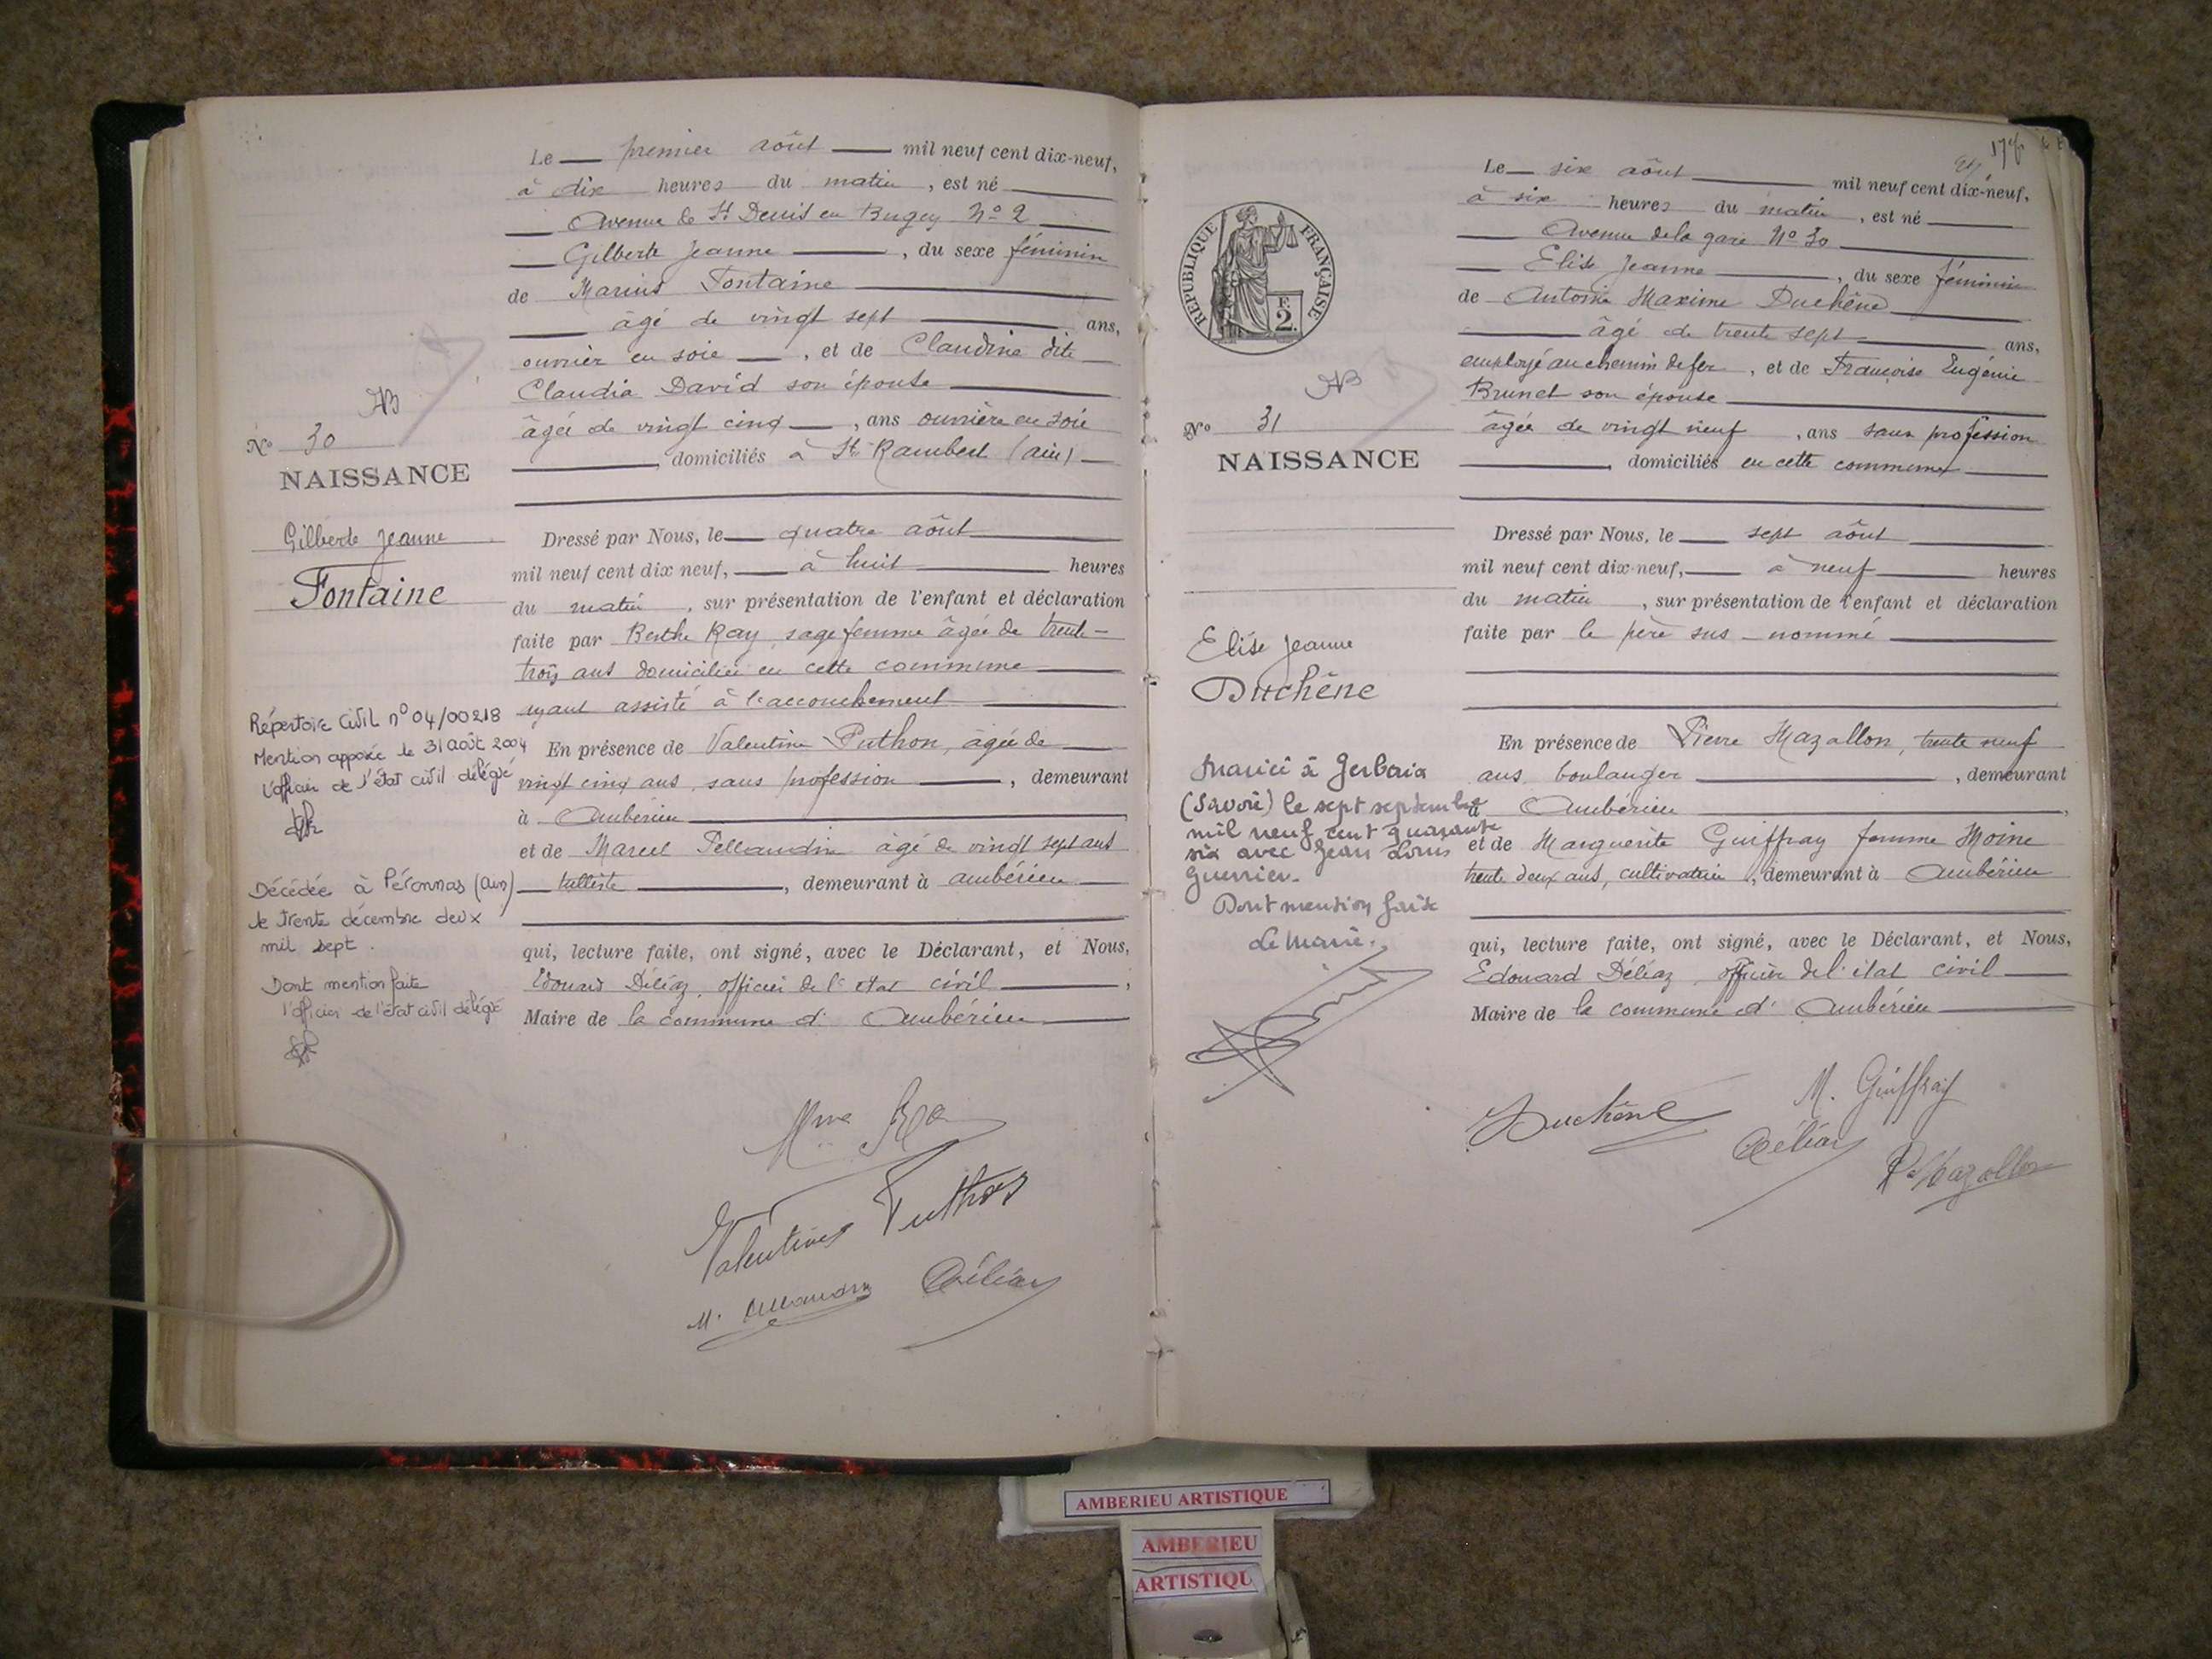 Le premier août mil neuf cent dix-neuf,
à dix heures du matin, est né
Avenue de St Denis en Bugey No 2
Gilberte Jeanne, du sexe féminin
de Marius Fontaine
âgé de vingt sept ans,
ouvrier en soie, et de Claudine dite
Claudia David son épouse
âgée de vingt cinq, ans ouvrière en soie
domiciliés à St Rambert (ain)
No 30
NAISSANCE
Gilberte Jeanne
Fontaine
Dressé par Nous, le quatre août
mil neuf cent dix neuf, à huit heures
du matin, sur présentation de l'enfant et déclaration
faite par Berthe Ray, sage femme âgée de trente-
trois ans domiciliée en cette commune
ayant assisté à l'accouchement
En présence de Valentine Puthon, âgée de
vingt cinq ans, sans profession, demeurant
à Ambérieu
et de Marcel Pellaudin âgé de vingt sept ans
tulliste, demeurant à ambérieu
qui, lecture faite, ont signé, avec le Déclarant, et Nous,
Edouard Déliaz, officier de l'etat civil,
Maire de la commune d' Ambérieu
Répertoire Civil n° 04/00218
Mention apposée le 31 août 2004
L'officier de l'état civil délégué
Décédée à Péronnas (Ain)
le trente décembre deux
mil sept.
Dont mention faite
l'officier de l'état civil délégué
Mme Ray
Valentine Puthon
Déliaz
17
Le six août mil neuf cent dix-neuf,
à six heures du matin, est né
Avenue de la gare No 30
Elise Jeanne, du sexe féminin
de Antoine Maxime Duchêne
âgé de trente sept ans,
employé au chemin de fer, et de Françoise Eugénie
Brunet son épouse
âgée de vingt neuf, ans sans profession
domiciliés en cette commune
REPUBLIQUE FRANÇAISE
F.
2.
No 31
NAISSANCE
Elise Jeanne
Duchêne
Dressé par Nous, le sept août
mil neuf cent dix-neuf, à neuf heures
du matin, sur présentation de l'enfant et déclaration
faite par le père sus-nommé
En présence de Pierre Mazallon, trente neuf
ans, boulanger, demeurant
à Ambérieu,
et de Marguerite Guiffray femme Moine
trente deux ans, cultivatrice, demeurant à Ambérieu
qui, lecture faite, ont signé, avec le Déclarant, et Nous,
Edouard Déliaz, officier de l'état civil
Maire de la commune d' Ambérieu
Mariée à
(Savoie) le sept septembre
mil neuf cent quarante
six avec Jean Louis
Guerrier.
Dont mention faite
Le Maire.
Duchêne
M. Guiffray
Déliaz
P. Mazallon
AMBERIEU ARTISTIQUE
AMBERIEU
ARTISTIQU